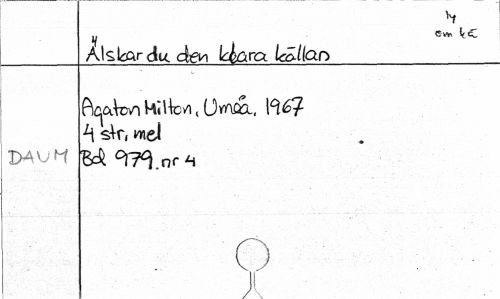 Älskar du den klara källan
Agaton Milton, Umeå, 1967
4 str, mel
DAUM Bd 979. nr 4